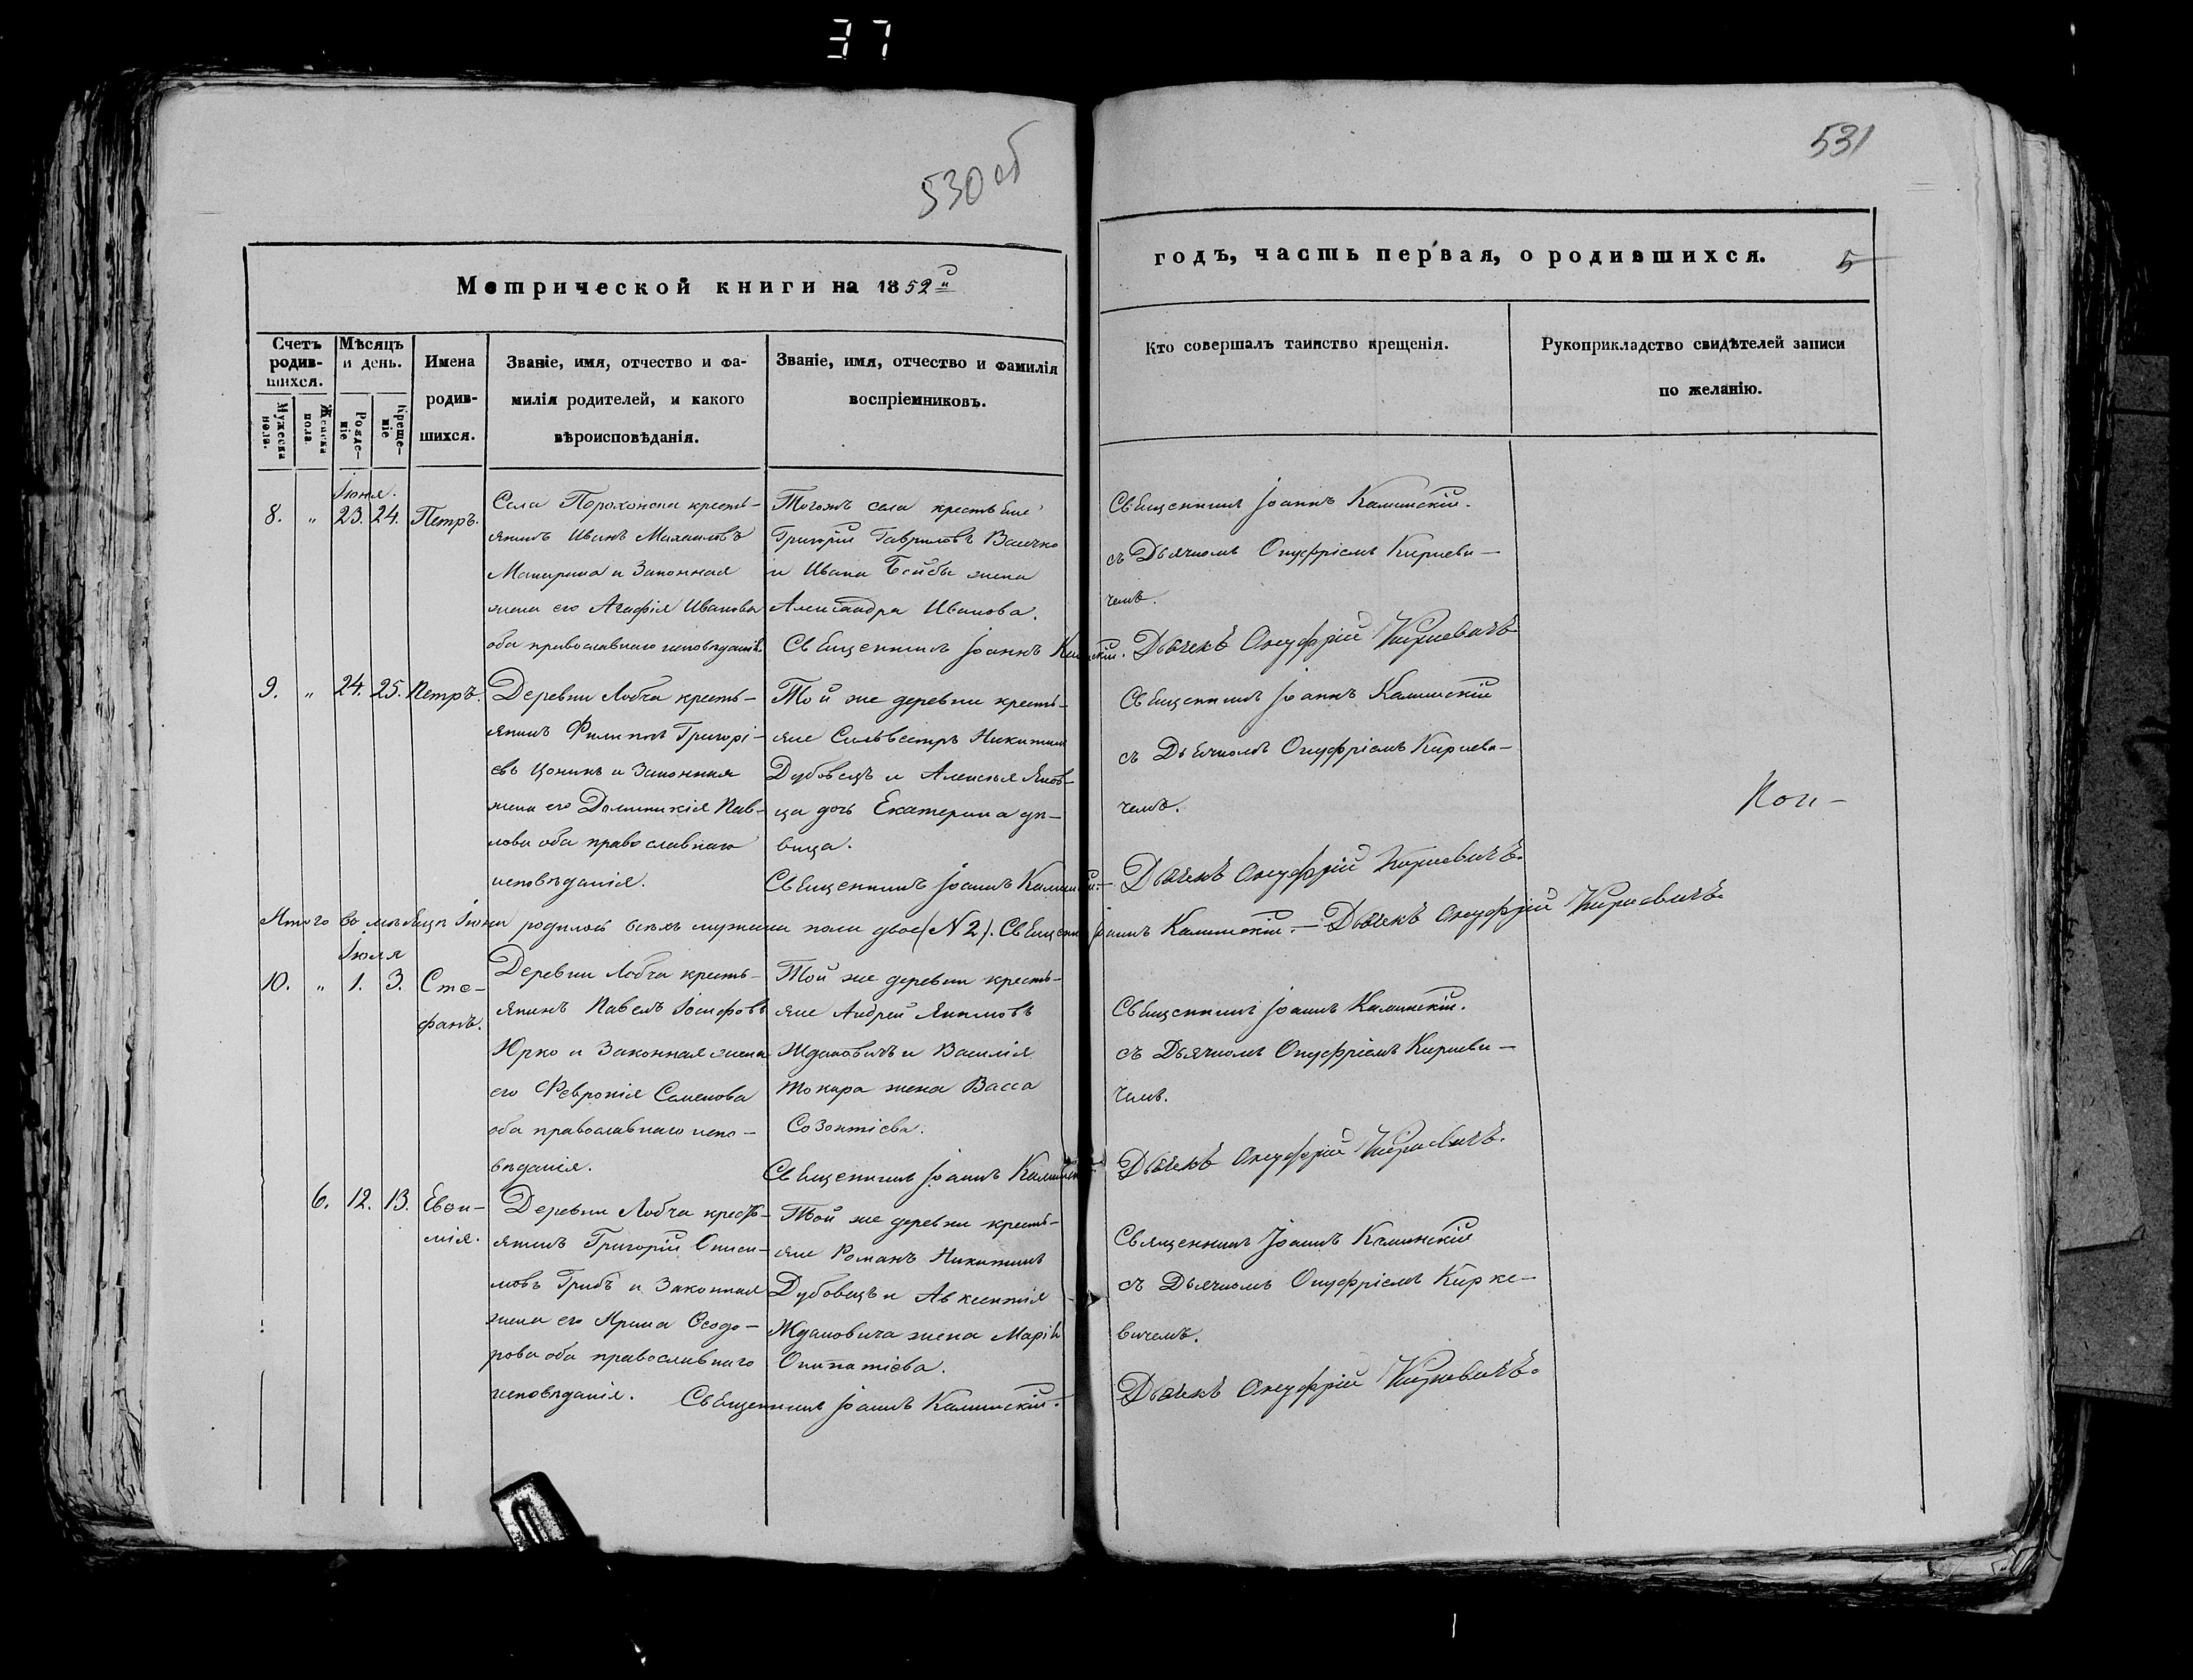 37
530 об
531
Метрической книги на 1852й
годъ, часть первая, о родившихся.
5
Счетъ родившихся.
Мужеска пола.
Женска пола.
Мѣсяцъ и день.
Рожденіе
Крещеніе
Имена родившихся.
Званіе, имя, отчество и фамилія родителей, и какого вѣроисповѣданія.
Званіе, имя, отчество и фамилія воспріемниковъ.
Кто совершалъ таинство крещенія.
Рукоприкладство свидѣтелей записи по желанію.
Іюня.
8. „ 23. 24. Петръ.
Села Порохонска кресть-
янинъ Иванъ Михаиловъ
и Законная
жена его Агафія Иванова
оба православнаго исповѣданія.
Тогожъ села крестьяне
Григорій Гавриловъ
и Ивана жена
Александра Иванова.
Священникъ Іоаннъ Калинскій.
Священникъ Іоаннъ Калинскій.
съ Дьячкомъ Онуфріемъ Киркеви-
чемъ.
Дьячекъ Онуфрій Киркевичъ
9. „ 24. 25. Петръ.
Деревни Лобча кресть-
янинъ Филиппъ Григорі-
евъ и Законная
жена его Домникія Пав-
лова оба православнаго
исповѣданія.
Той же деревни кресть-
яне Сильвестръ Никитинъ
Дубовецъ и Алексея Яков-
ца дочь Екатерина дѣ-
вица.
Священникъ Іоаннъ Калинскій.
Священникъ Іоаннъ Калинскій
съ Дьячкомъ Онуфріемъ Киркеви-
чемъ.
Дьячекъ Онуфрій Киркевичъ.
Итого во мѣсяцѣ Іюнѣ родилось всѣхъ мужеска пола двое (N 2). Священникъ Іоаннъ Калинскій. — Дьячекъ Онуфрій Киркевичъ.
Іюля
10. „ 1. 3. Сте-
фанъ.
Деревни Лобча кресть-
янинъ Павелъ Іосифовъ
Юрко и Законная жена
его Февронія Семенова
оба православнаго испо-
вѣданія.
Той же деревни кресть-
яне Андрей Якимовъ
Ждановичъ и Василія
Токара жена Васса
Созонтіева.
Священникъ Іоаннъ Калинскій
Священникъ Іоаннъ Калинскій.
съ Дьячкомъ Онуфріемъ Киркеви-
чемъ.
Дьячекъ Онуфрій Киркевичъ.
6. 12. 13. Евѳи-
мія.
Деревни Лобча кресть-
янинъ ГригорійОниси-
мовъ Грибъ и Законная
жена его Ирина Ѳеодо-
рова оба православнаго
исповѣданія.
Той же деревни кресть-
яне Романъ Никитинъ
Дубовецъ и Авксентія
Ждановича жена Марія
Священникъ Іоаннъ Калинскій.
Священникъ Іоаннъ Калинскій
съ Дьячкомъ Онуфріемъ Кирке-
вичемъ.
Дьячекъ Онуфрій Киркевичъ.